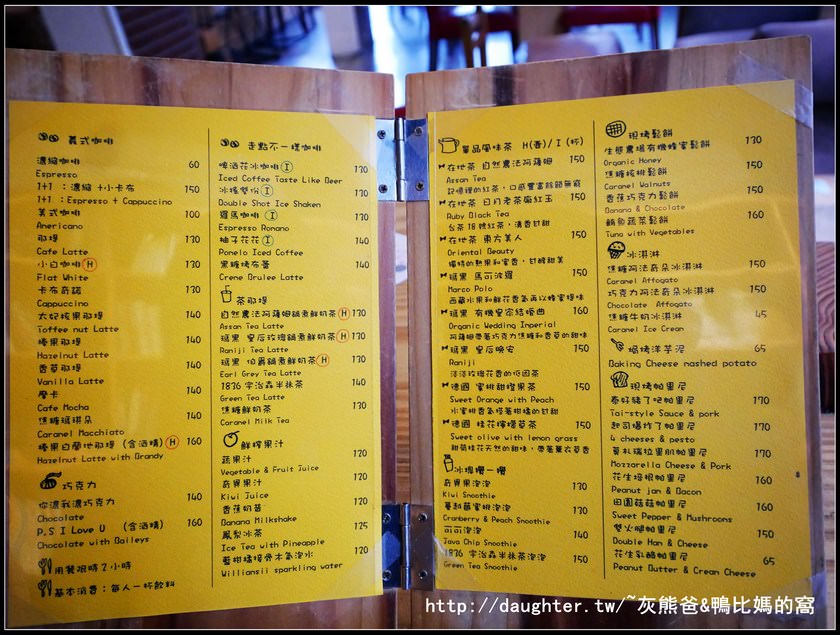 義式咖啡
濃縮咖啡 60
Espresso
1+1 ：濃縮＋小卡布 150
1+1 ：Espresso + Cappuccino
美式咖啡 100
Americano
那提 130
Cafe Latte
小白咖啡 H 130
Flat White
卡布奇諾 130
Cappuccino
太妃核果那提 140
Toffee nut Latte
榛果那提 140
Hazelnut Latte
香草那提 140
Vanilla Latte
摩卡 140
Cafe Mocha
焦糖瑪琪朵 140
Caramel Macchiato
榛果白蘭地那提 (含酒精) H 160
Hazelnut Latte with Brandy
巧克力
你濃我濃巧克力 140
Chocolate
P.S I Love U (含酒精) 160
Chocolate with Baileys
用餐限時2小時
基本消費：每人一杯飲料
走點不一樣咖啡
啤酒花冰咖啡 I 130
Iced Coffee Taste Like Beer
冰搖雙份 I 130
Double Shot Ice Shaken
羅馬咖啡 I 130
Espresso Romano
柚子花花 I 140
Pomelo Iced Coffee
黑糖烤布蕾 140
Creme Brulee Latte
茶那提
自然農法阿薩姆鍋煮鮮奶茶 H 130
Assam Tea Latte
瑪黑 皇后玫瑰鍋煮鮮奶茶 H 130
Raniji Tea Latte
瑪黑 伯爵鍋煮鮮奶茶 H 130
Earl Grey Tea Latte
1836 宇治森半抹茶 140
Green Tea Latte
焦糖鮮奶茶 130
Caramel Milk Tea
鮮榨果汁
蔬果汁 120
Vegetable & Fruit Juice
奇異果汁 120
Kiwi Juice
香蕉奶昔 120
Banana Milkshake
鳳梨冰茶 125
Ice Tea with Pineapple
薑柑橘接骨木氣泡水 120
Williansii sparkling water
單品風味茶 H(壺)/ I (杯)
在地茶 自然農法阿薩姆 150
Assam Tea
記憶裡的紅茶，口感豐富餘韻無窮
在地茶 日月老茶廠紅玉 150
Ruby Black Tea
台茶18號紅茶，清香甘甜
在地茶 東方美人 150
Oriental Beauty
獨特的熟果和蜜香，甘醇甜美
瑪黑 馬可波羅 150
Marco Polo
西藏水果和鮮花香氣再以蜂蜜提味
瑪黑 有機皇家結婚曲 160
Organic Wedding Imperial
阿薩姆帶著巧克力焦糖和香草的甜味
瑪黑 皇后晚安 150
Raniji
淡淡玫瑰花香的低因茶
德國 蜜桃甜橙果茶 150
Sweet Orange with Peach
水蜜桃香氣怪著柑橘的甘甜
德國 桂花檸檬草茶 150
Sweet olive with lemon grass
甜菊桂花天然的甜味，帶著薰衣草香
冰塊攪一攪
奇異果泡泡 150
Kiwi Smoothie
蔓越莓蜜桃泡泡 130
Cranberry & Peach Smoothie
可可泡泡 140
Java Chip Smoothie
1836 宇治森半抹茶泡泡 150
Green Tea Smoothie
現烤鬆餅
生態農場有機蜂蜜鬆餅 130
Organic Honey
焦糖核桃鬆餅 150
Caramel Walnuts
香蕉巧克力鬆餅 150
Banana & Chocolate
鮪魚蔬菜鬆餅 160
Tuna with Vegetables
冰淇淋
焦糖阿法奇朵冰淇淋 150
Caramel Affogato
巧克力阿法奇朵冰淇淋 150
Chocolate Affogato
焦糖牛奶冰淇淋 45
Caramel Ice Cream
焗烤洋芋泥 65
Baking Cheese mashed potato
現烤帕里尼
泰好豬了吧帕里尼 170
Tai-style Sauce & pork
起司爆炸了帕里尼 170
4 cheeses & pesto
莫札瑞拉里肌帕里尼 170
Mozzarella Cheese & Pork
花生培根帕里尼 160
Peanut jam & Bacon
田園菇菇帕里尼 160
Sweet Pepper & Mushrooms
雙火腿帕里尼 150
Double Ham & Cheese
花生乳酪帕里尼 65
Peanut Butter & Cream Cheese
http://daughter.tw/~灰熊爸&鴨比媽的窩